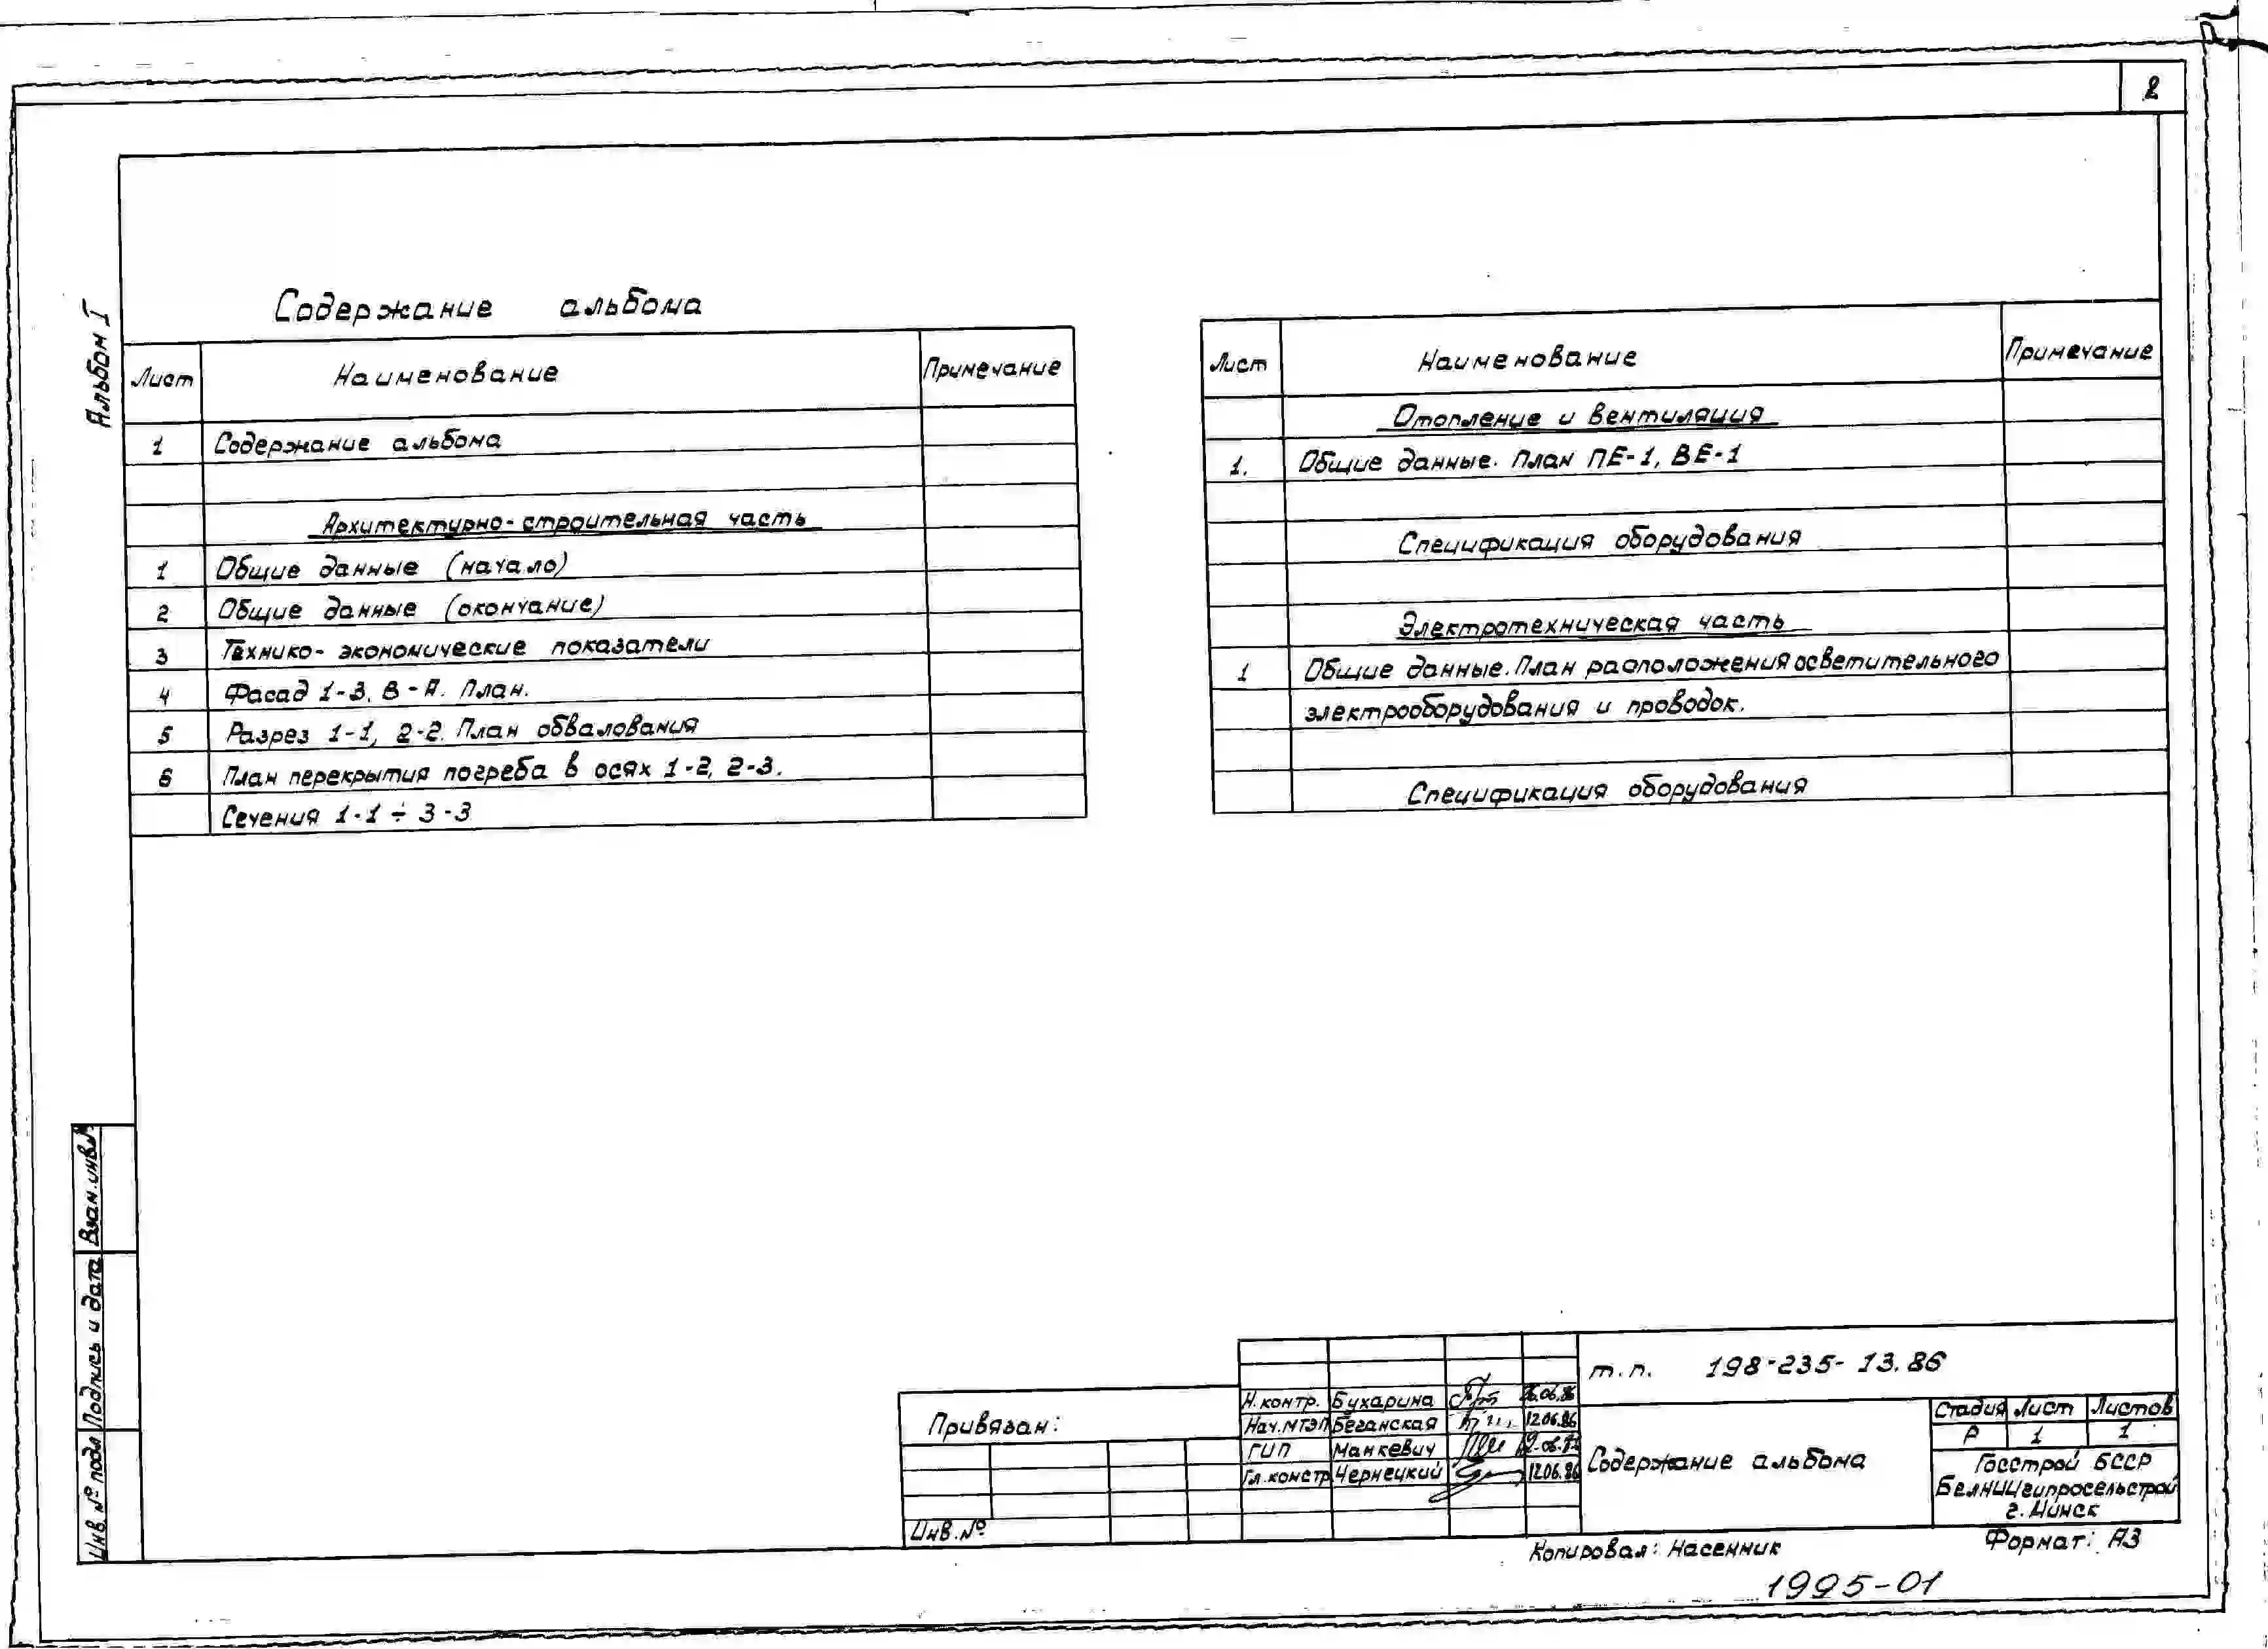 2
Альбом I
Содержание альбома
Лист Наименование Примечание
1 Содержание альбома
Архитектурно-строительная часть
1 Общие данные (начало)
2 Общие данные (окончание)
3 Технико-экономические показатели
4 Фасад 1-3. В-А. План.
5 Разрез 1-1, 2-2. План обвалования
6 План перекрытия погреба в осях 1-2, 2-3.
Сечения 1-1 ÷ 3-3
Лист Наименование Примечание
Отопление и вентиляция
1. Общие данные. План ПЕ-1, ВЕ-1
Спецификация оборудования
Электротехническая часть
1 Общие данные. План расположения осветительного
электрооборудования и проводок.
Спецификация оборудования
Взам. инв. №
Подпись и дата
Инв. № подл
Привязан:
Инв. №
Н. контр. Бухарина 06.86
Нач. МТЭП Беганская 12.06.86
ГИП Манкевич
Гл. констр Чернецкий 12.06.86
т.п. 198-235-13.86
Содержание альбома
Стадия Лист Листов
Р 1 1
Госстрой БССР
БелНИИгипросельстрой
г. Минск
Копировал: Насенник
Формат: А3
1995-01